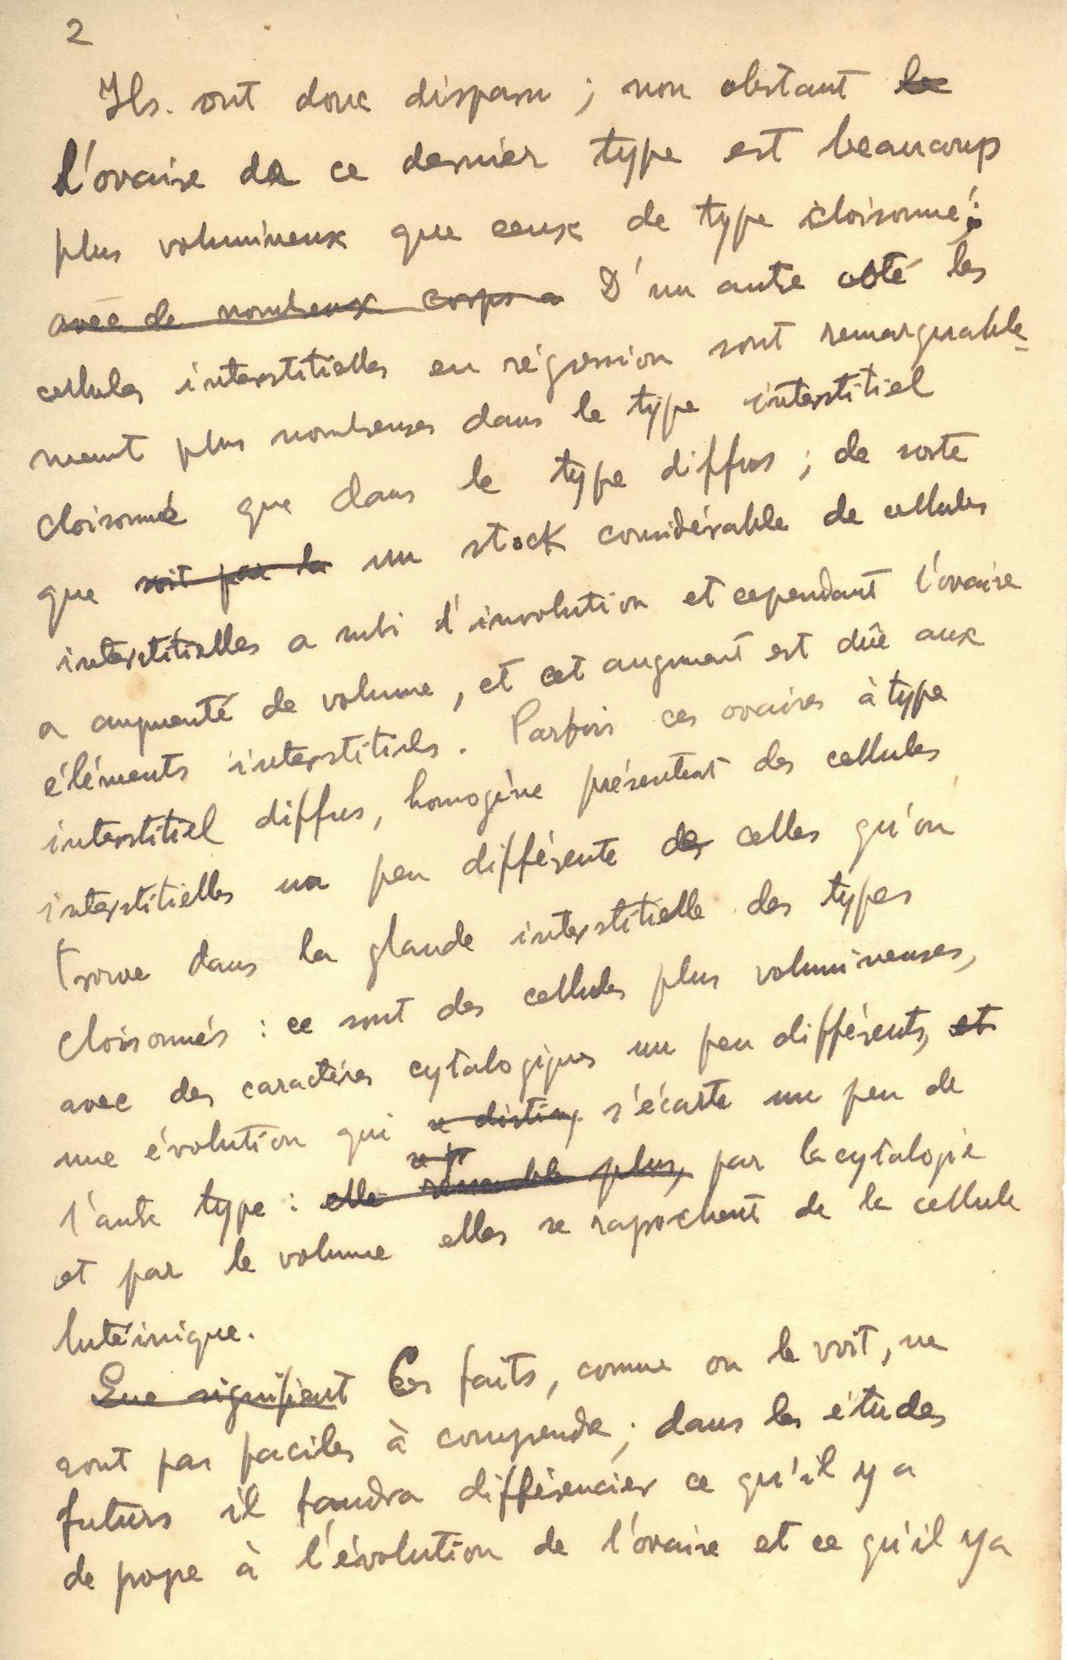 2
Ils. ont donc disparu ; non obstant le
l'ovaire de ce dernier type est beaucoup
plus volumineux que ceux de type cloisonné.
avec de nombreux corps a D'un autre coté les
cellules interstitielles en régression sont remarquable-
ment plus nombreuses dans le type interstitiel
cloisonné que dans le type diffus ; de sorte
que soit par la un stock considérable de cellules
interstitielles a subi d'involution et cependant l'ovaire
a augmenté de volume, et cet augment est dûe aux
éléments interstitiels. Parfois ces ovaires à type
interstitiel diffus, homogène présentent des cellules
interstitielles un peu différente des celles qu'on
trouve dans la glande interstitielle des types
cloisonnés : ce sont des cellules plus volumineuses,
avec des caractères cytalogiques un peu différents, et
une évolution qui se disting s'écarte un peu de
l'autre type : elle resemble plus, par la cytalogie
et par le volume elles se rapprochent de la cellule
lutéinique.
Que signifient Ces faits, comme on le voit, ne
sont pas faciles à comprendre ; dans les études
futurs il faudra différencier ce qu'il y a
de propre à l'évolution de l'ovaire et ce qu'il y a